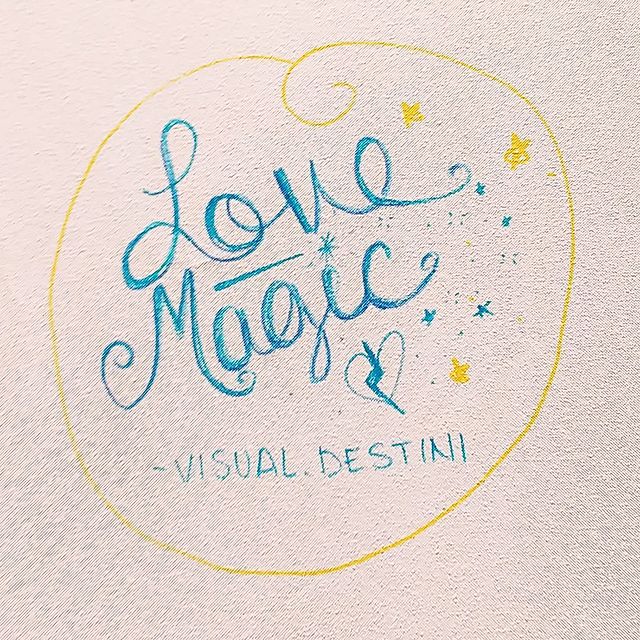 Love
Magic
-VISUAL.DESTINI